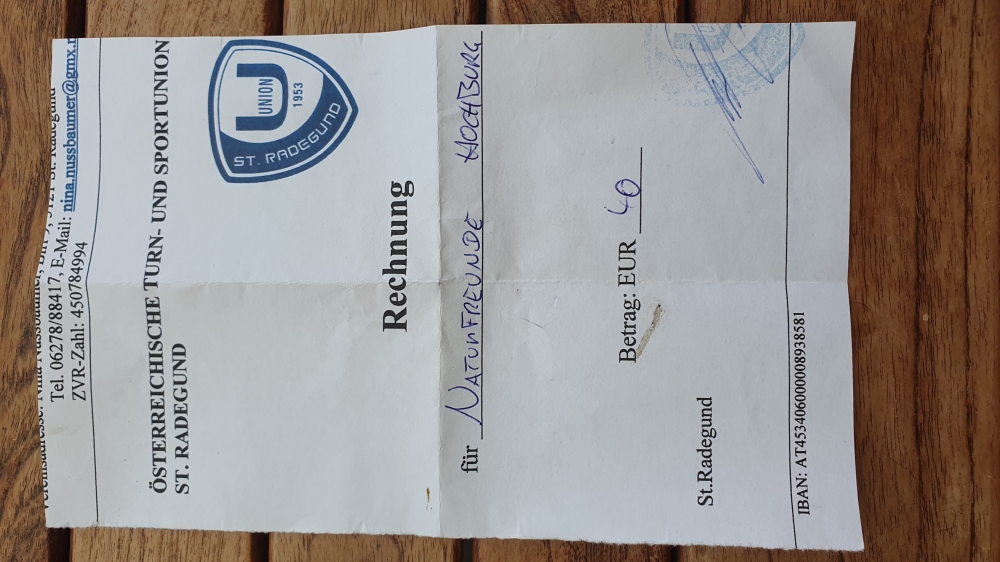 Vereinsadresse: Nina Nussbaumer, Ettl 9, 5121 St. Radegund
Tel. 06278/88417, E-Mail: nina.nussbaumer@gmx.
ZVR-Zahl: 450784994
ÖSTERREICHISCHE TURN- UND SPORTUNION
ST. RADEGUND
U
UNION
1953
ST. RADEGUND
Rechnung
für NATURFREUNDE HOCHBURG
Betrag: EUR 40
St.Radegund
IBAN: AT453406000008938581